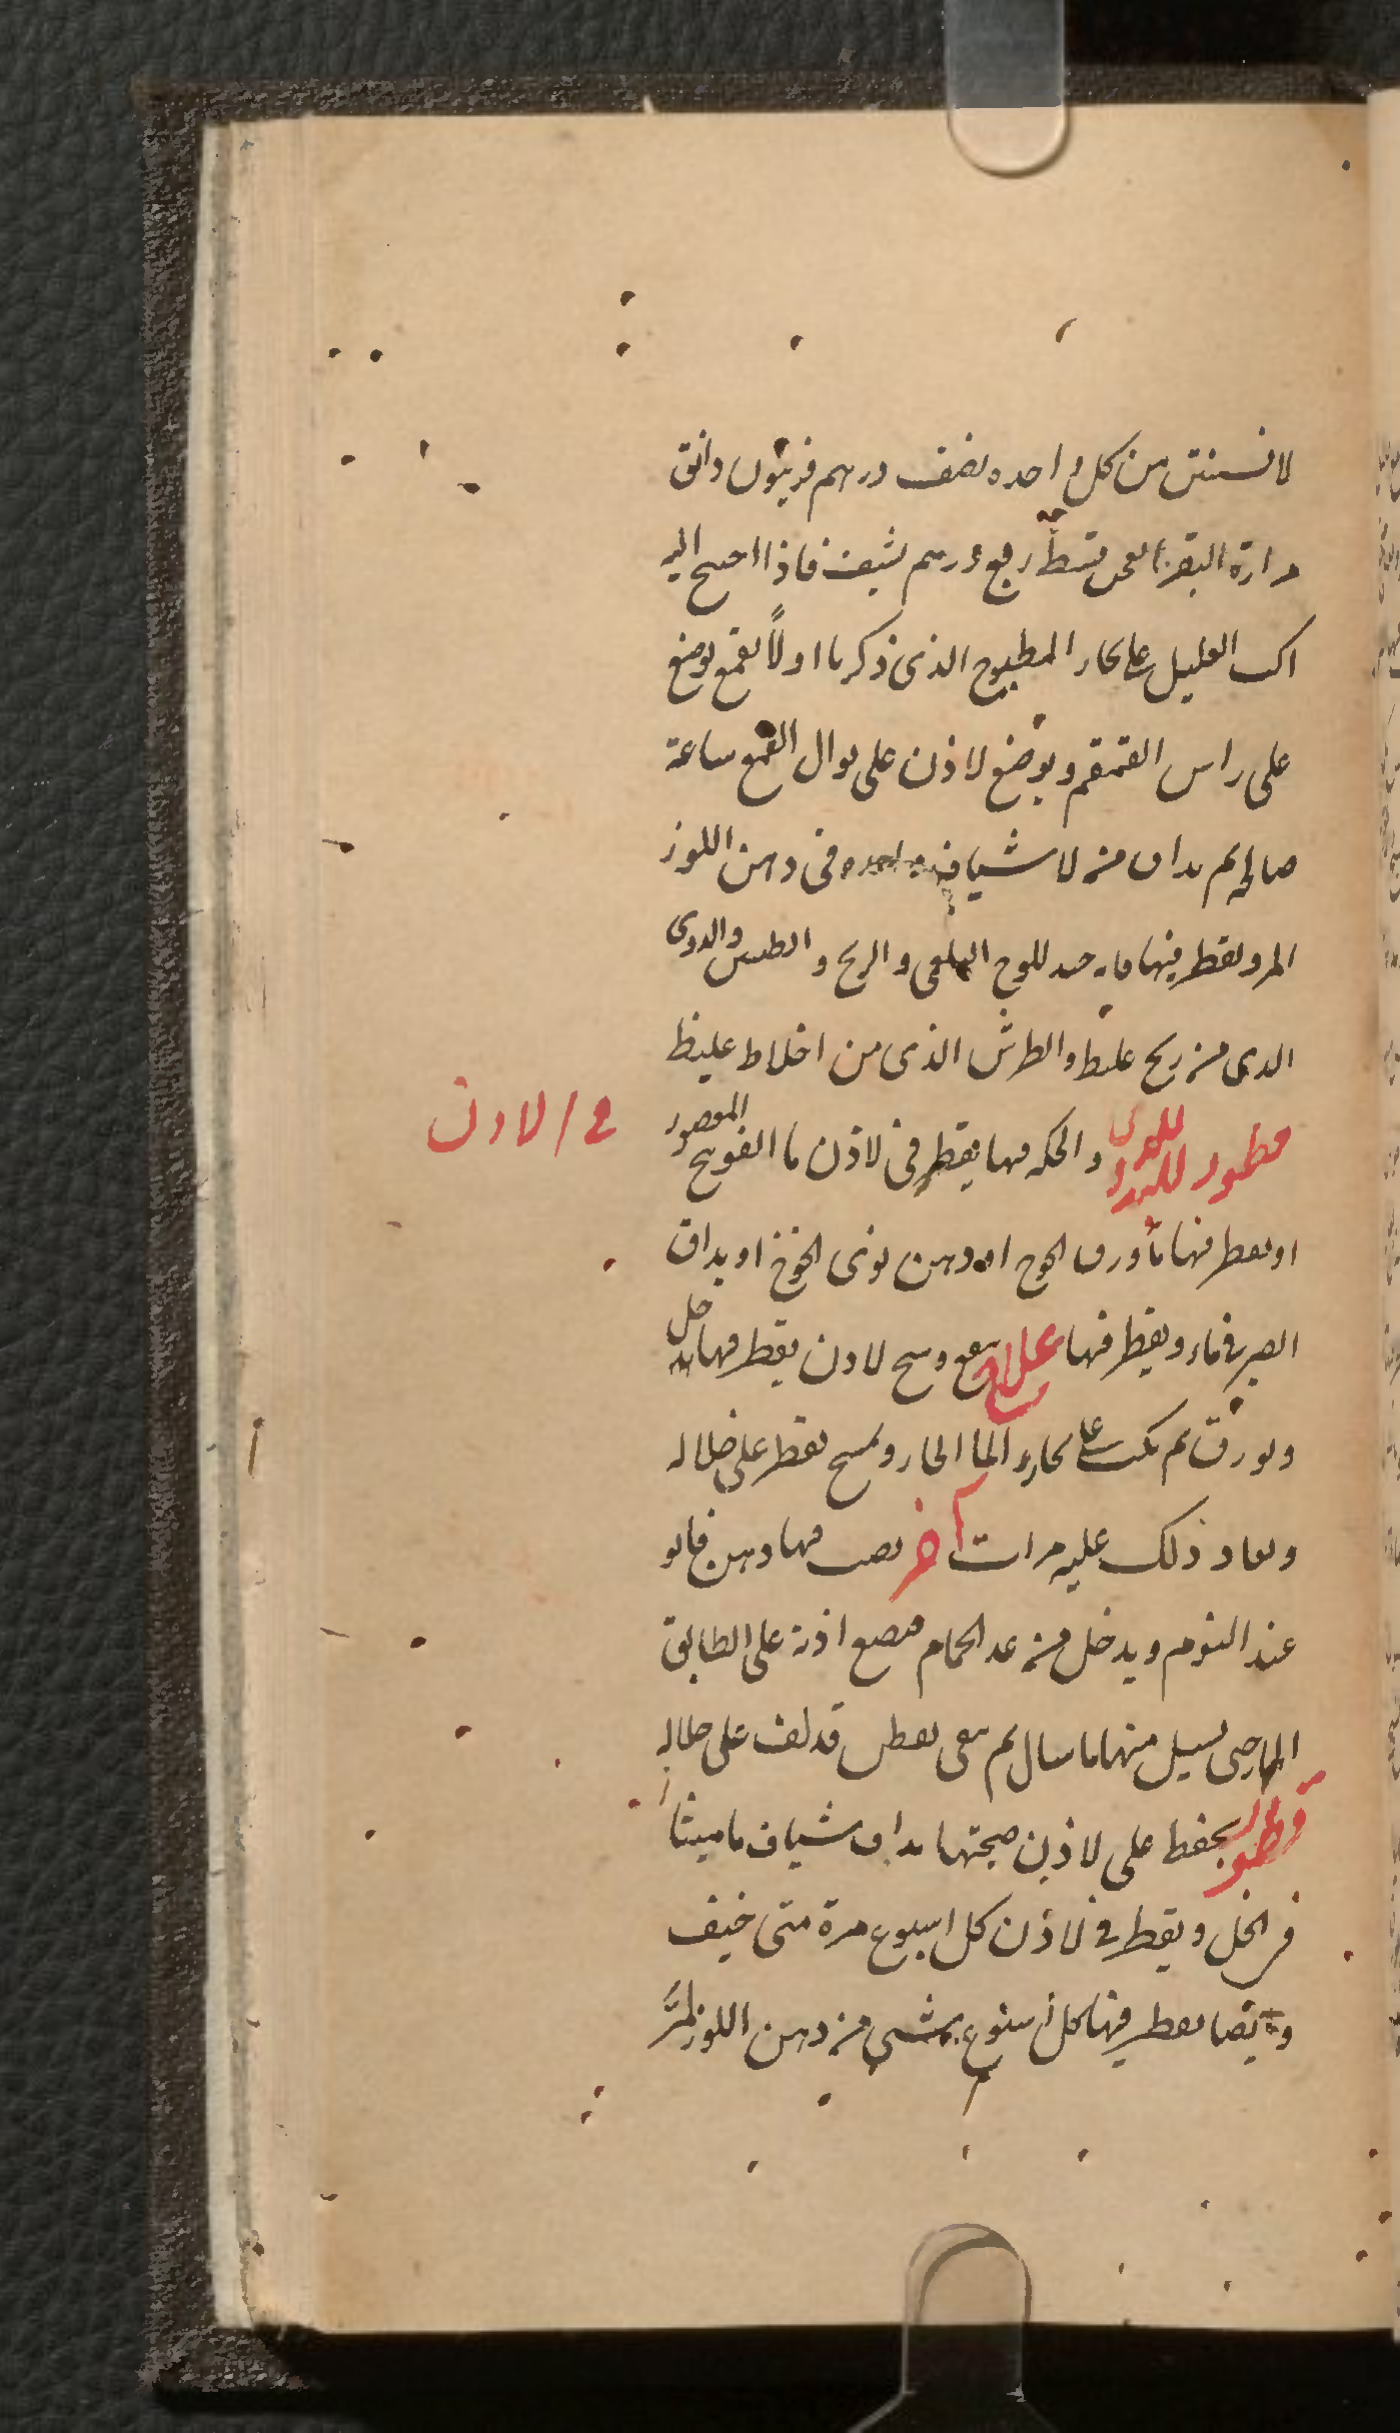 لافسنتين من كل واحده نصف درهم فربيون دانق
مرارة البقر بالعجن قسط ربع درهم يشيف فاذا احتيج اليه
اكب العليل على بخار المطبوخ الذى ذكرنا اولاً بقمع يوضع
على راس القمقم ويوضع لاذن على بوال القمع ساعة
صالحه ثم يداف منه لاشياف فى دهن اللوز
المر ويقطر فيها فانه جيد للوجع البلغمى والريح و الطنين والدوى
الذى من ريح غليظ والطرش الذى من اخلاط غليظ
قطور للدود و الحكه فيها يقطر فى لاذن ما الفوتنج المعصور
فى الاذن
او يقطر فيها ما ورق الخوخ او دهن نوى الخوخ او يداف
الصبر فى ماء ويقطر فيها علاج وسخ لاذن يقطر فيها خل
وبورق ثم يكب على بخار الما الحار ويمسح يقطر على خلاله
ويعاد ذلك عليه مرات آخر يصب فيها دهن فاتر
عند النوم ويدخل من غد الحمام فيضع اذنه على الطابق
الحار حتى يسيل منها ما سال ثم ينقى بقطن قد لف على خلاله
قطور يحفظ على لاذن صحتها يداف شياف ماميثا
فى الخل ويقطر فى لاذن كل اسبوع مرة متى خيف
وايضا يقطر فيها كل اسبوع بشى من دهن اللوز المر